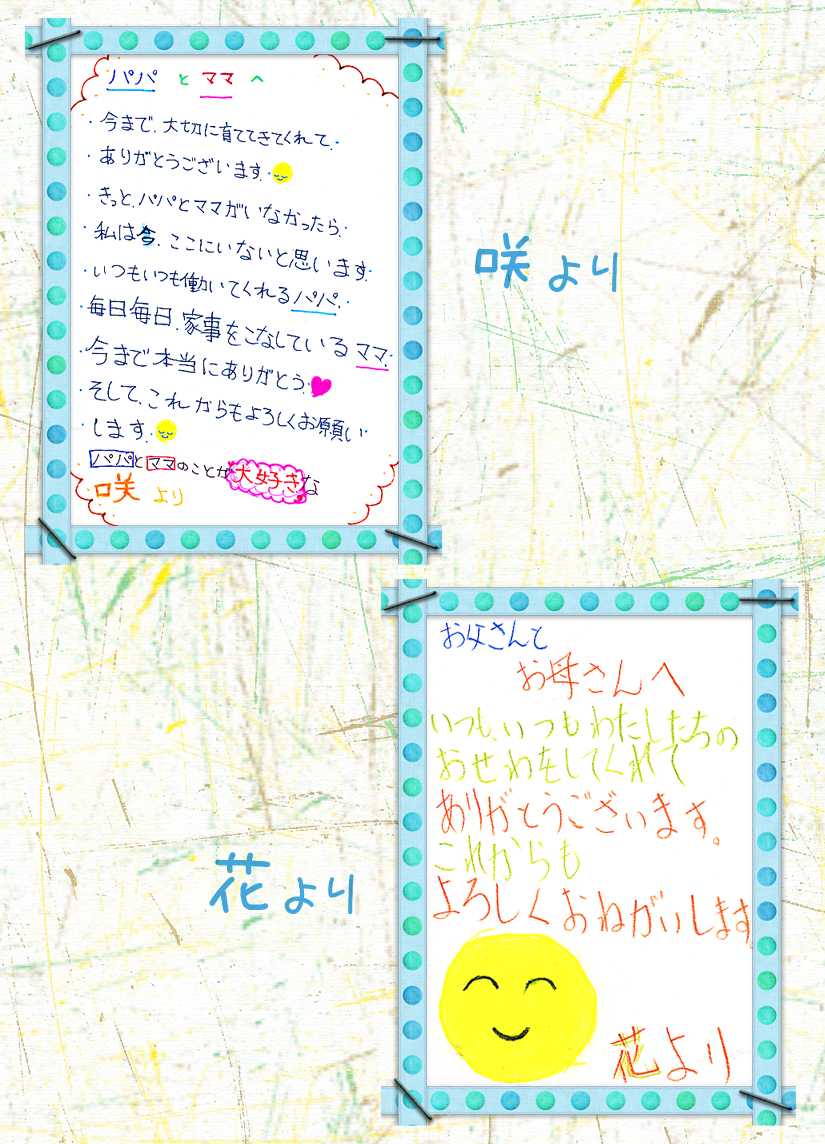 パパ と ママ へ
今まで、大切に育ててきてくれて、
ありがとうございます。
きっと、パパとママがいなかったら、
私は今、ここにいないと思います。
いつもいつも働いてくれるパパ、
毎日毎日、家事をこなしているママ、
今まで本当にありがとう。
そして、これからもよろしくお願い
します。
パパとママのことが大好きな
咲 より
咲 より
お父さんと
お母さんへ
いつも、いつもわたしたちの
おせわをしてくれて
ありがとうございます。
これからも
よろしくおねがいします。
花より
花より